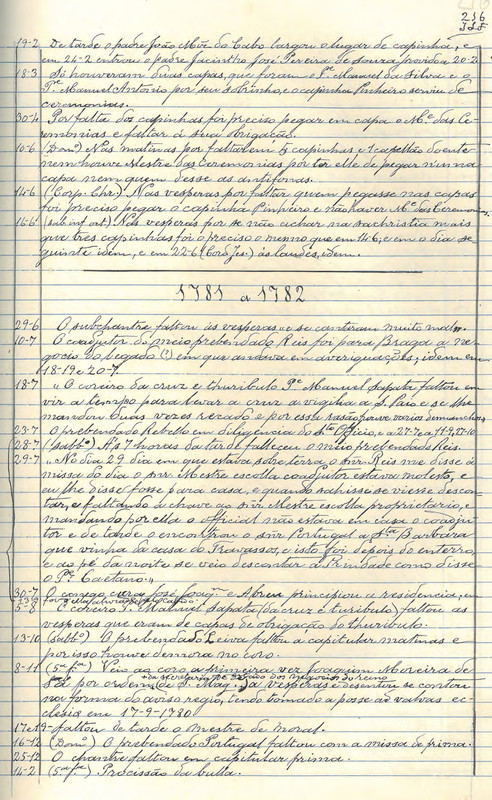 216
19-2 De tarde o padre João Mor.ª do Cabo largou o lugar de capinha, e
em 24-2 entrou o padre Jacintho José Pereira de Souza provido a 20-2.
18-3 Só houveram duas capas, que foram o P.e Manuel da Silva e o
P.e Manuel Antonio por seu sobrinho, e o capinha Pinheiro serviu de
ceremonias.
30-4 Por falta dos capinhas foi preciso pegar em capa o M.e das Ce-
remonias e faltar á sua obrigação.
10-6 (Dom.º) Nas matinas por faltarem 5 capinhas e 1 capellão doente
nem houve Mestre das Ceremonias por ter elle de pegar n'uma
capa nem quem desse as antifonas.
14-6 (Corp. Chr.) Nas vesperas por faltar quem pegasse nas capas
foi preciso pegar o capinha Pinheiro e não haver M.e das Ceremonias.
16-6 (sub inf. oct.) Nas vesperas por se não achar na sachristia mais
que tres capinhas foi o preciso o mesmo que em 14-6, e em o dia se-
guinte idem, e em 22-6 (Cord. Jes.) ás laudes, idem.
1781 a 1782
29-6 O subchantre faltou ás vesperas "e se cantaram muito mal".
10-7 O coadjutor do meio prebendado Reis foi para Braga a ne-
gocio do legado (?) em que andava em averiguações; idem em
18-19 e 20-7.
18-7 "O coreiro da cruz e thuribulo P.e Manuel Sapata faltou em
vir a tempo para levar a cruz a vizinha a S. Paio e se lhe
mandou duas vezes recado e por essa rasão houve varios
23-7 O prebendado Rebello em diligencia do S.to Officio, a 27-7, a 11-9, 17-10
28-7 (sabb.º) Ás 7 horas da tarde falleceu o meio prebendado Reis.
29-7 "No dia 29 dia em que estava sobre terra o snr. Reis me disse á
missa do dia o snr. Mestre escolla coadjutor estava molesto, e
eu lhe disse fosse para casa, e quando sahisse se viesse descon-
tar, e faltando a chave ao snr. Mestre escolla proprietario, e
mandando por ella o official não estava em casa o coadju-
tor e de tarde o encontrou o snr. Portugal a S.ta Barbara
que vinha da casa do Travassos, e isto foi depois do enterro,
e ao pé da noite se veio descontar á Trindade como disse
o P.e Caetano."
30-7 O conego cura José Joaq.m e Abreu principiou a residencia, em
5-8 O coreiro P. Manuel Sapata (da cruz e turibulo) faltou ás
vesperas que eram de capas de obrigação do thuribulo.
13-10 (Sabb.º) O prebendado Leiva faltou á capitular matinas e
por isso houve demora no coro.
8-11 (5.ª f.ª) Veio ao coro a primeira vez Joaquim Moreira de
Sá por ordem (de S. Mag.) da secretaria de estado dos negocios do reino a vesperas e desentou se contou
na forma do aviso regio, tendo tomado a posse ad valvas ec-
clesia em 17-9-1780.
17 e 19 - faltou de tarde o mestre de moral.
16-12 (Dom.º) O prebendado Portugal faltou com a missa de prima.
25-12 O chantre faltou em capitular prima.
14-2 (5.ª f.ª) Procissão da bulla.